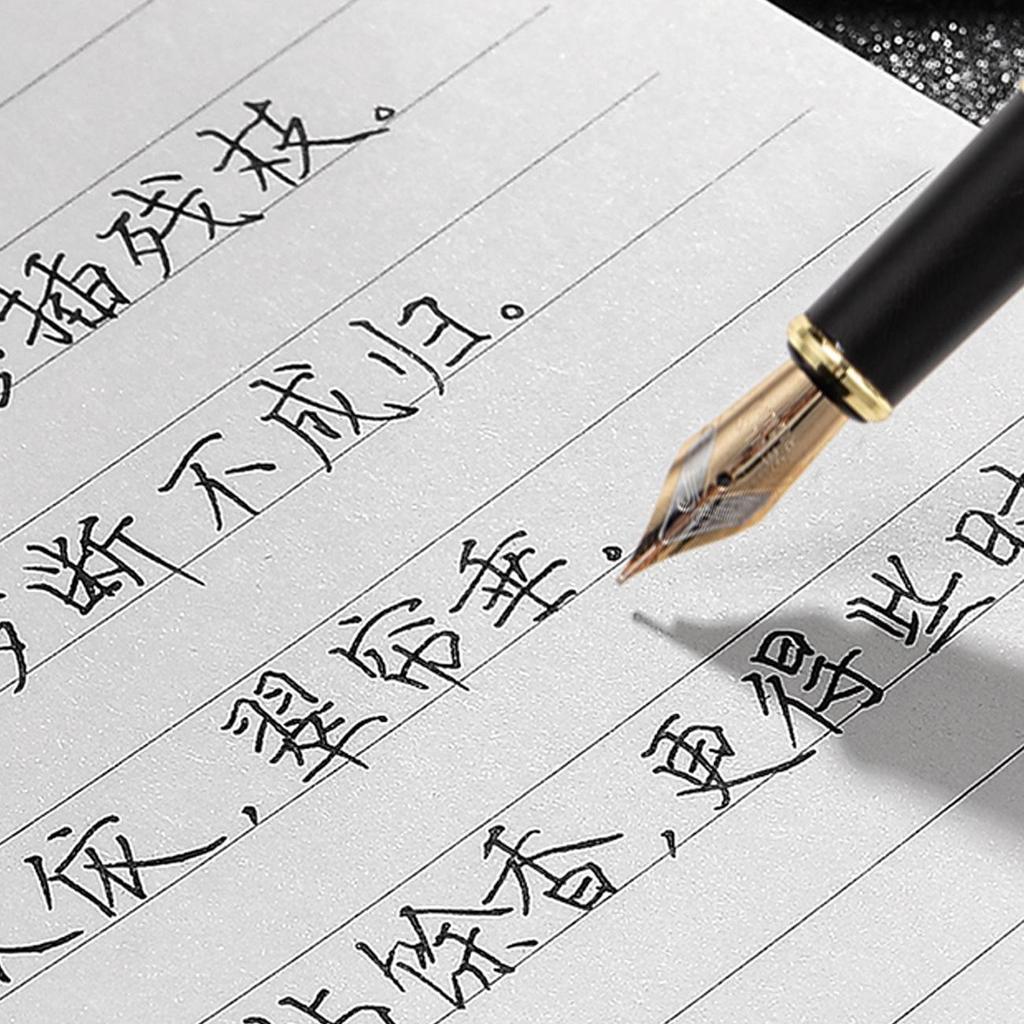 插残枝。
断不成归。
依，翠帘垂。
馀香，更得些时